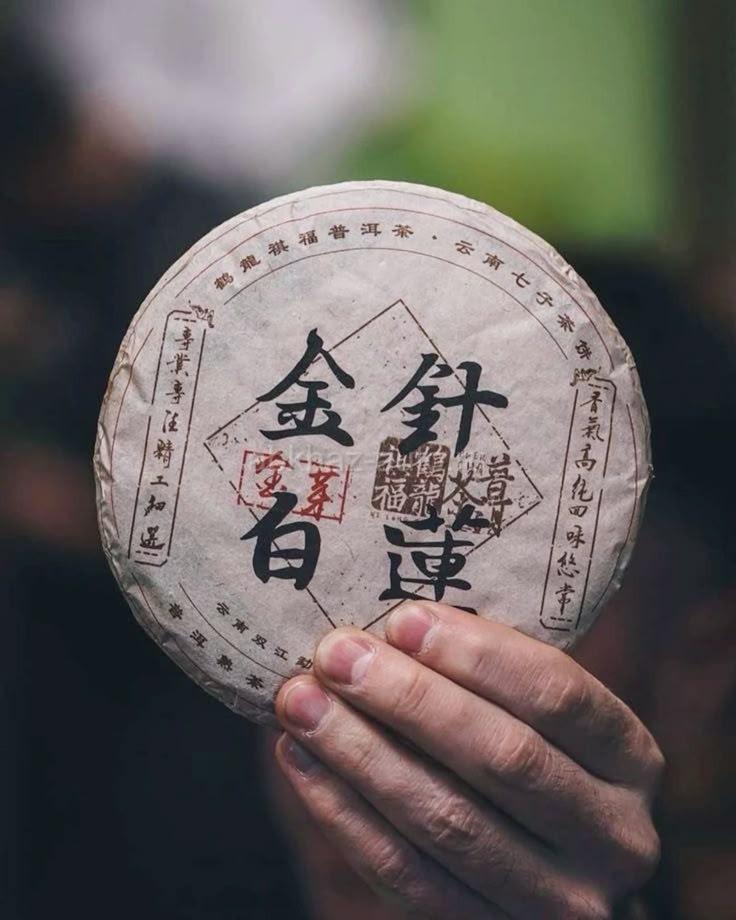 鶴龍祺福普洱茶·云南七子茶
金針
白蓮
金芽
鶴龍
福
茶
章
專業專注精工細選
香氣高純回味悠常
云南双江勐
普洱熟茶